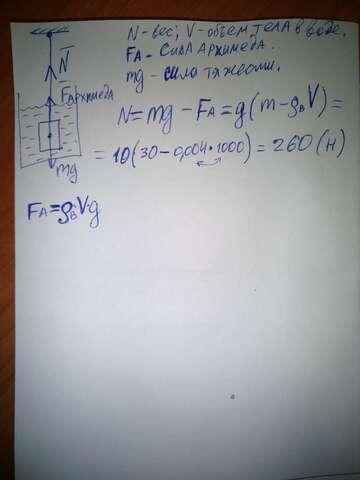 N - вес; V - объем тела в воде.
FА - сила Архимеда.
mg - сила тяжести.
N
FАрхимеда
mg
N = mg - FA = g(m - ρвV) =
= 10(30 - 0,004 · 1000) = 260 (н)
FA = ρвVg